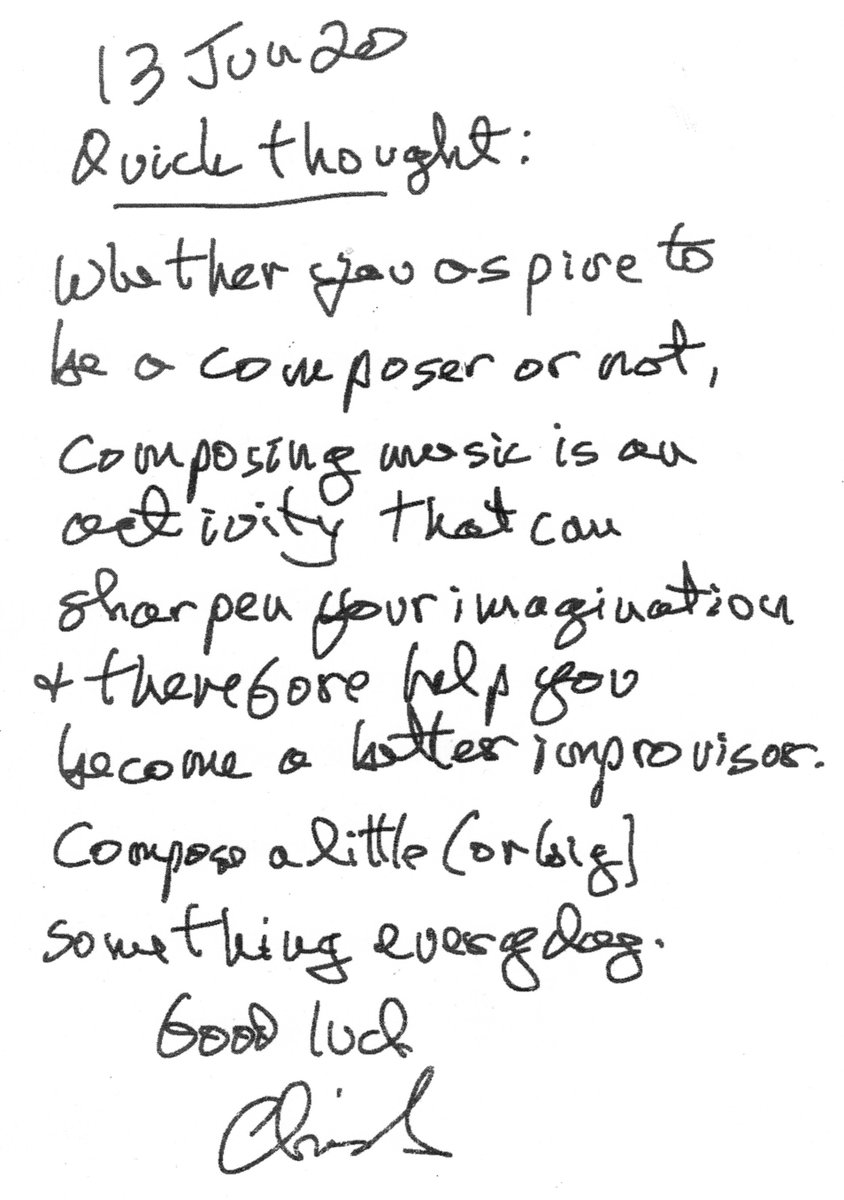 13 Jun 20
Quick thought:
Whether you aspire to
be a composer or not,
composing music is an
activity that can
sharpen your imagination
+ therefore help you
become a better improvisor.
Compose a little (or big)
something everyday.
Good luck